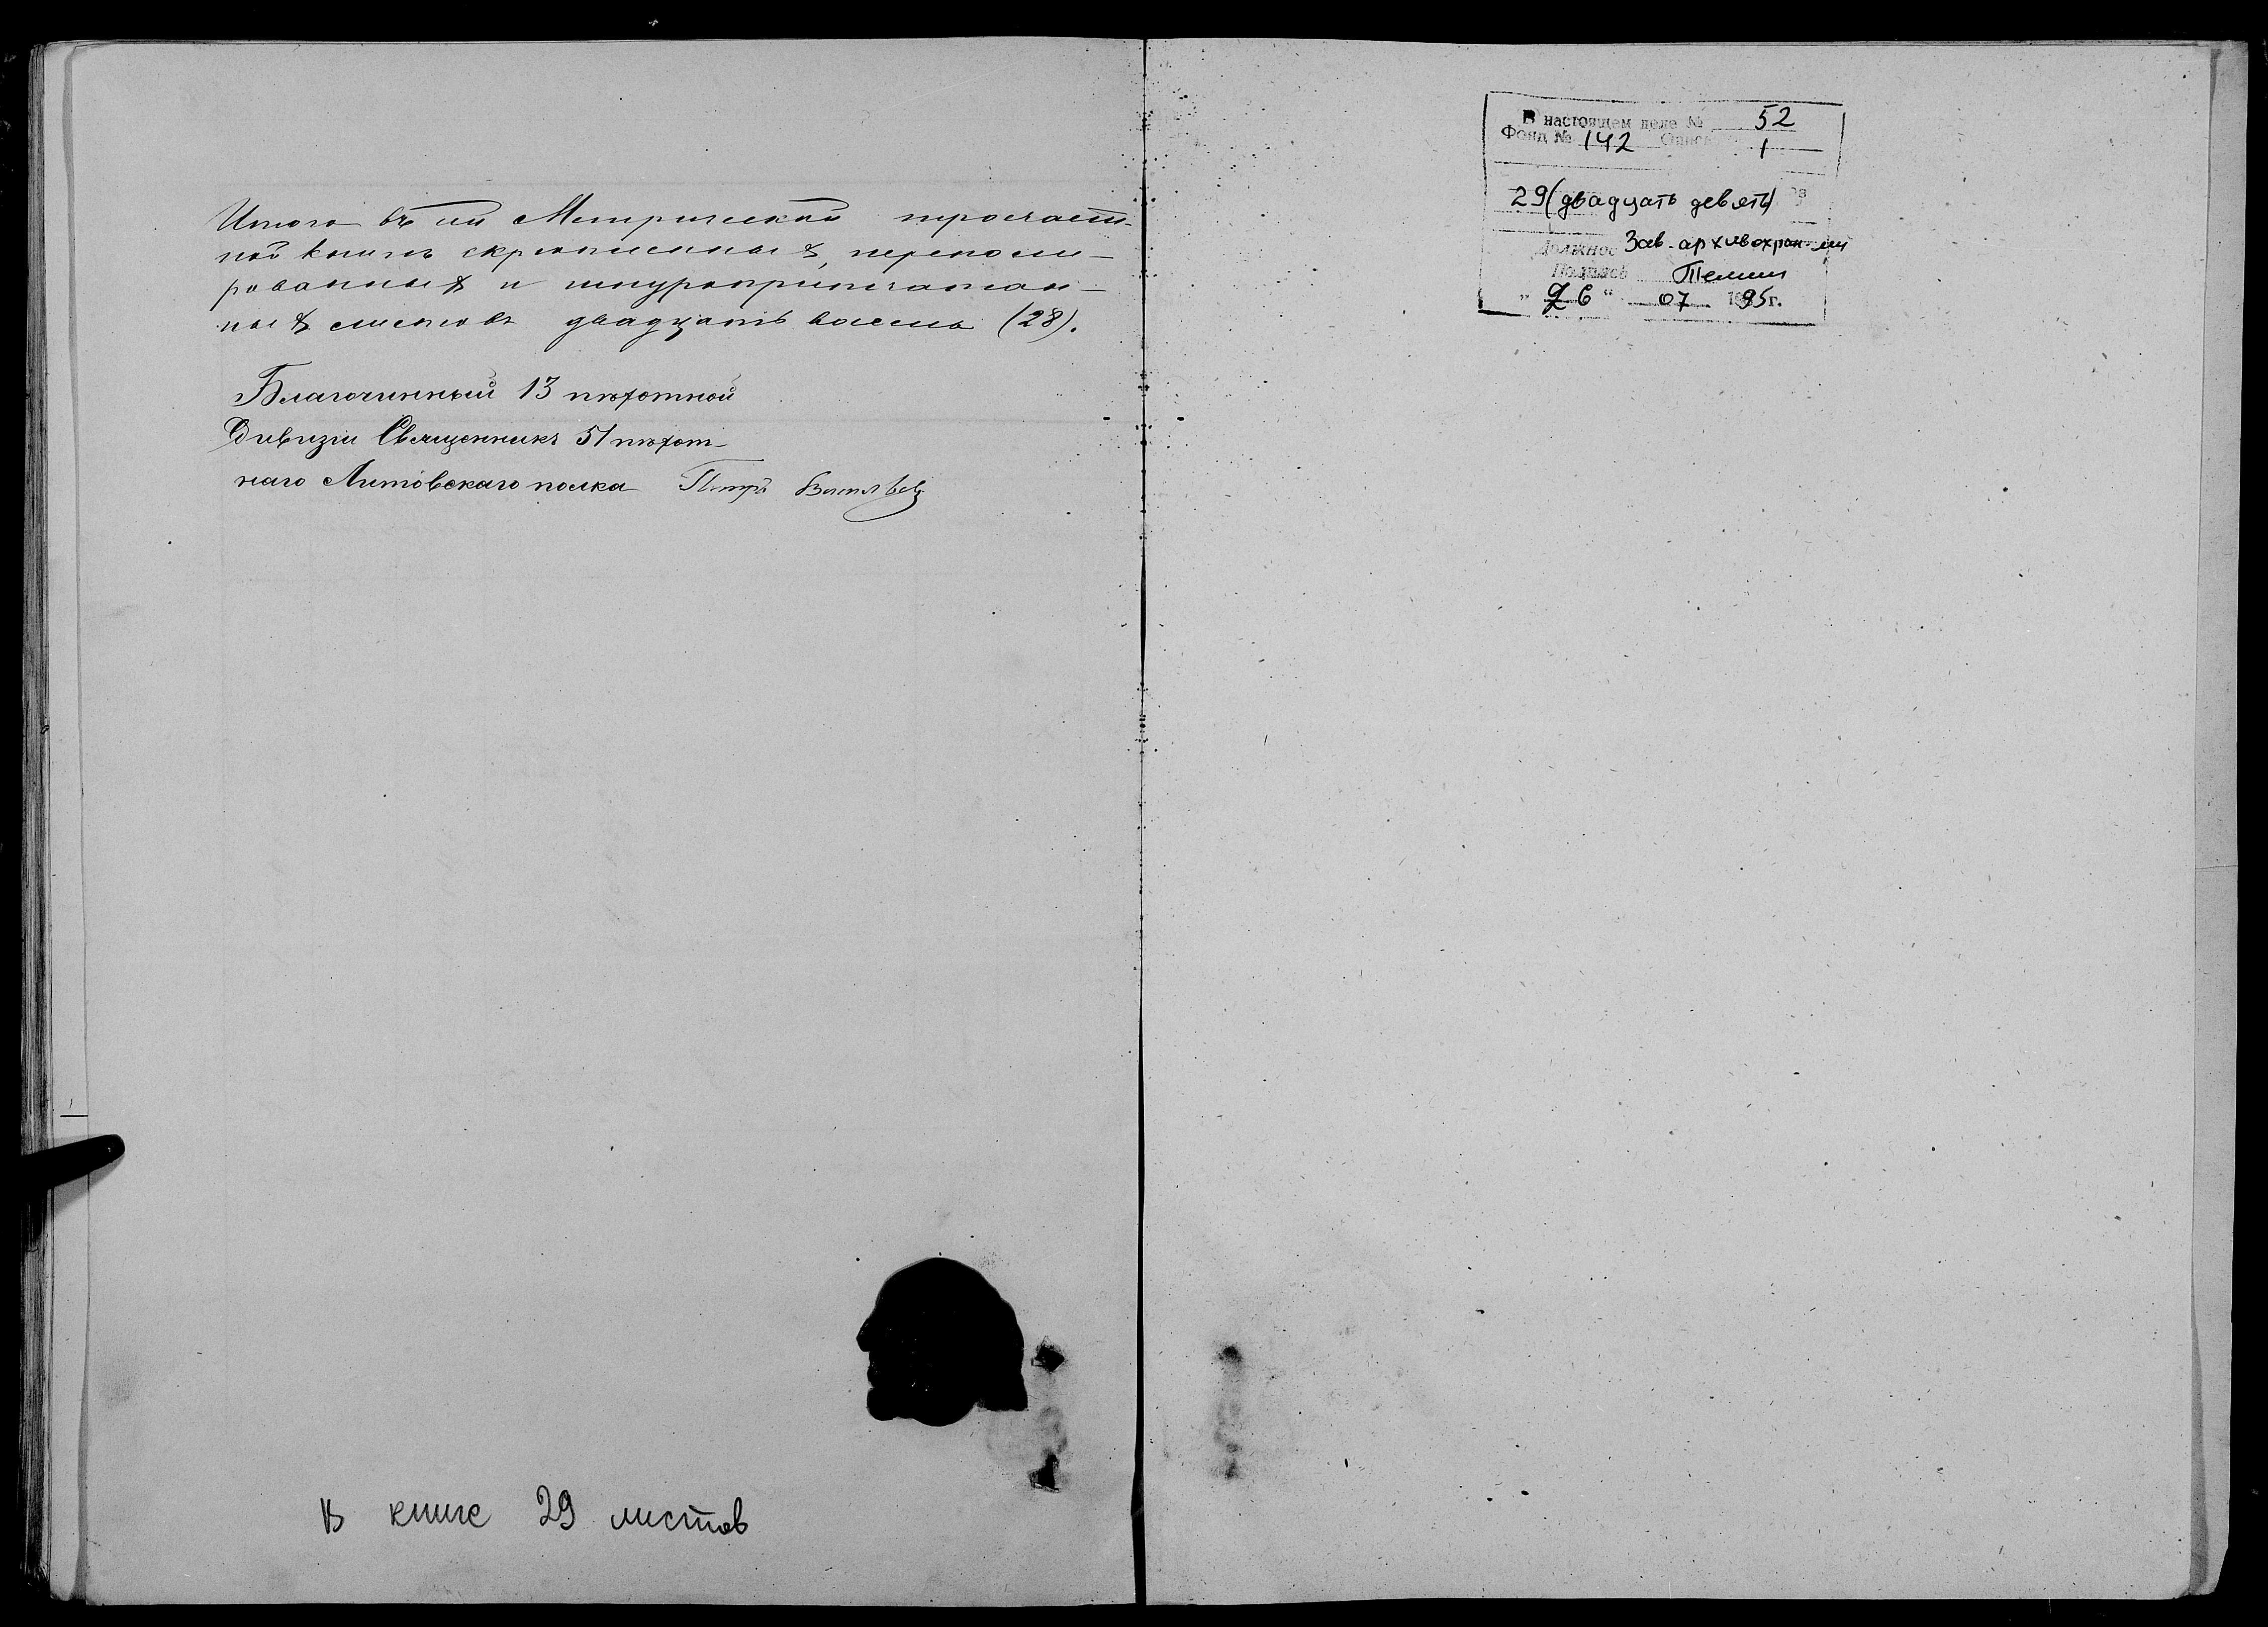 Итого въ сей Метрической троечаст-
ной книгѣ скрѣпленныхъ, перенуме-
рованныхъ и шнуроприпечатан-
ныхъ листовъ двадцать восемь (28).
Благочинный 13 пѣхотной
Дивизіи Священникъ 51 пѣхот-
наго Литовскаго полка Петръ
В книге 29 листов
В настоящем деле № 52
Фонд № 142 Опись 1
29 (двадцать девять)
Должнос Зав. архивохран-ем
Подпись
"26" 07 1995г.